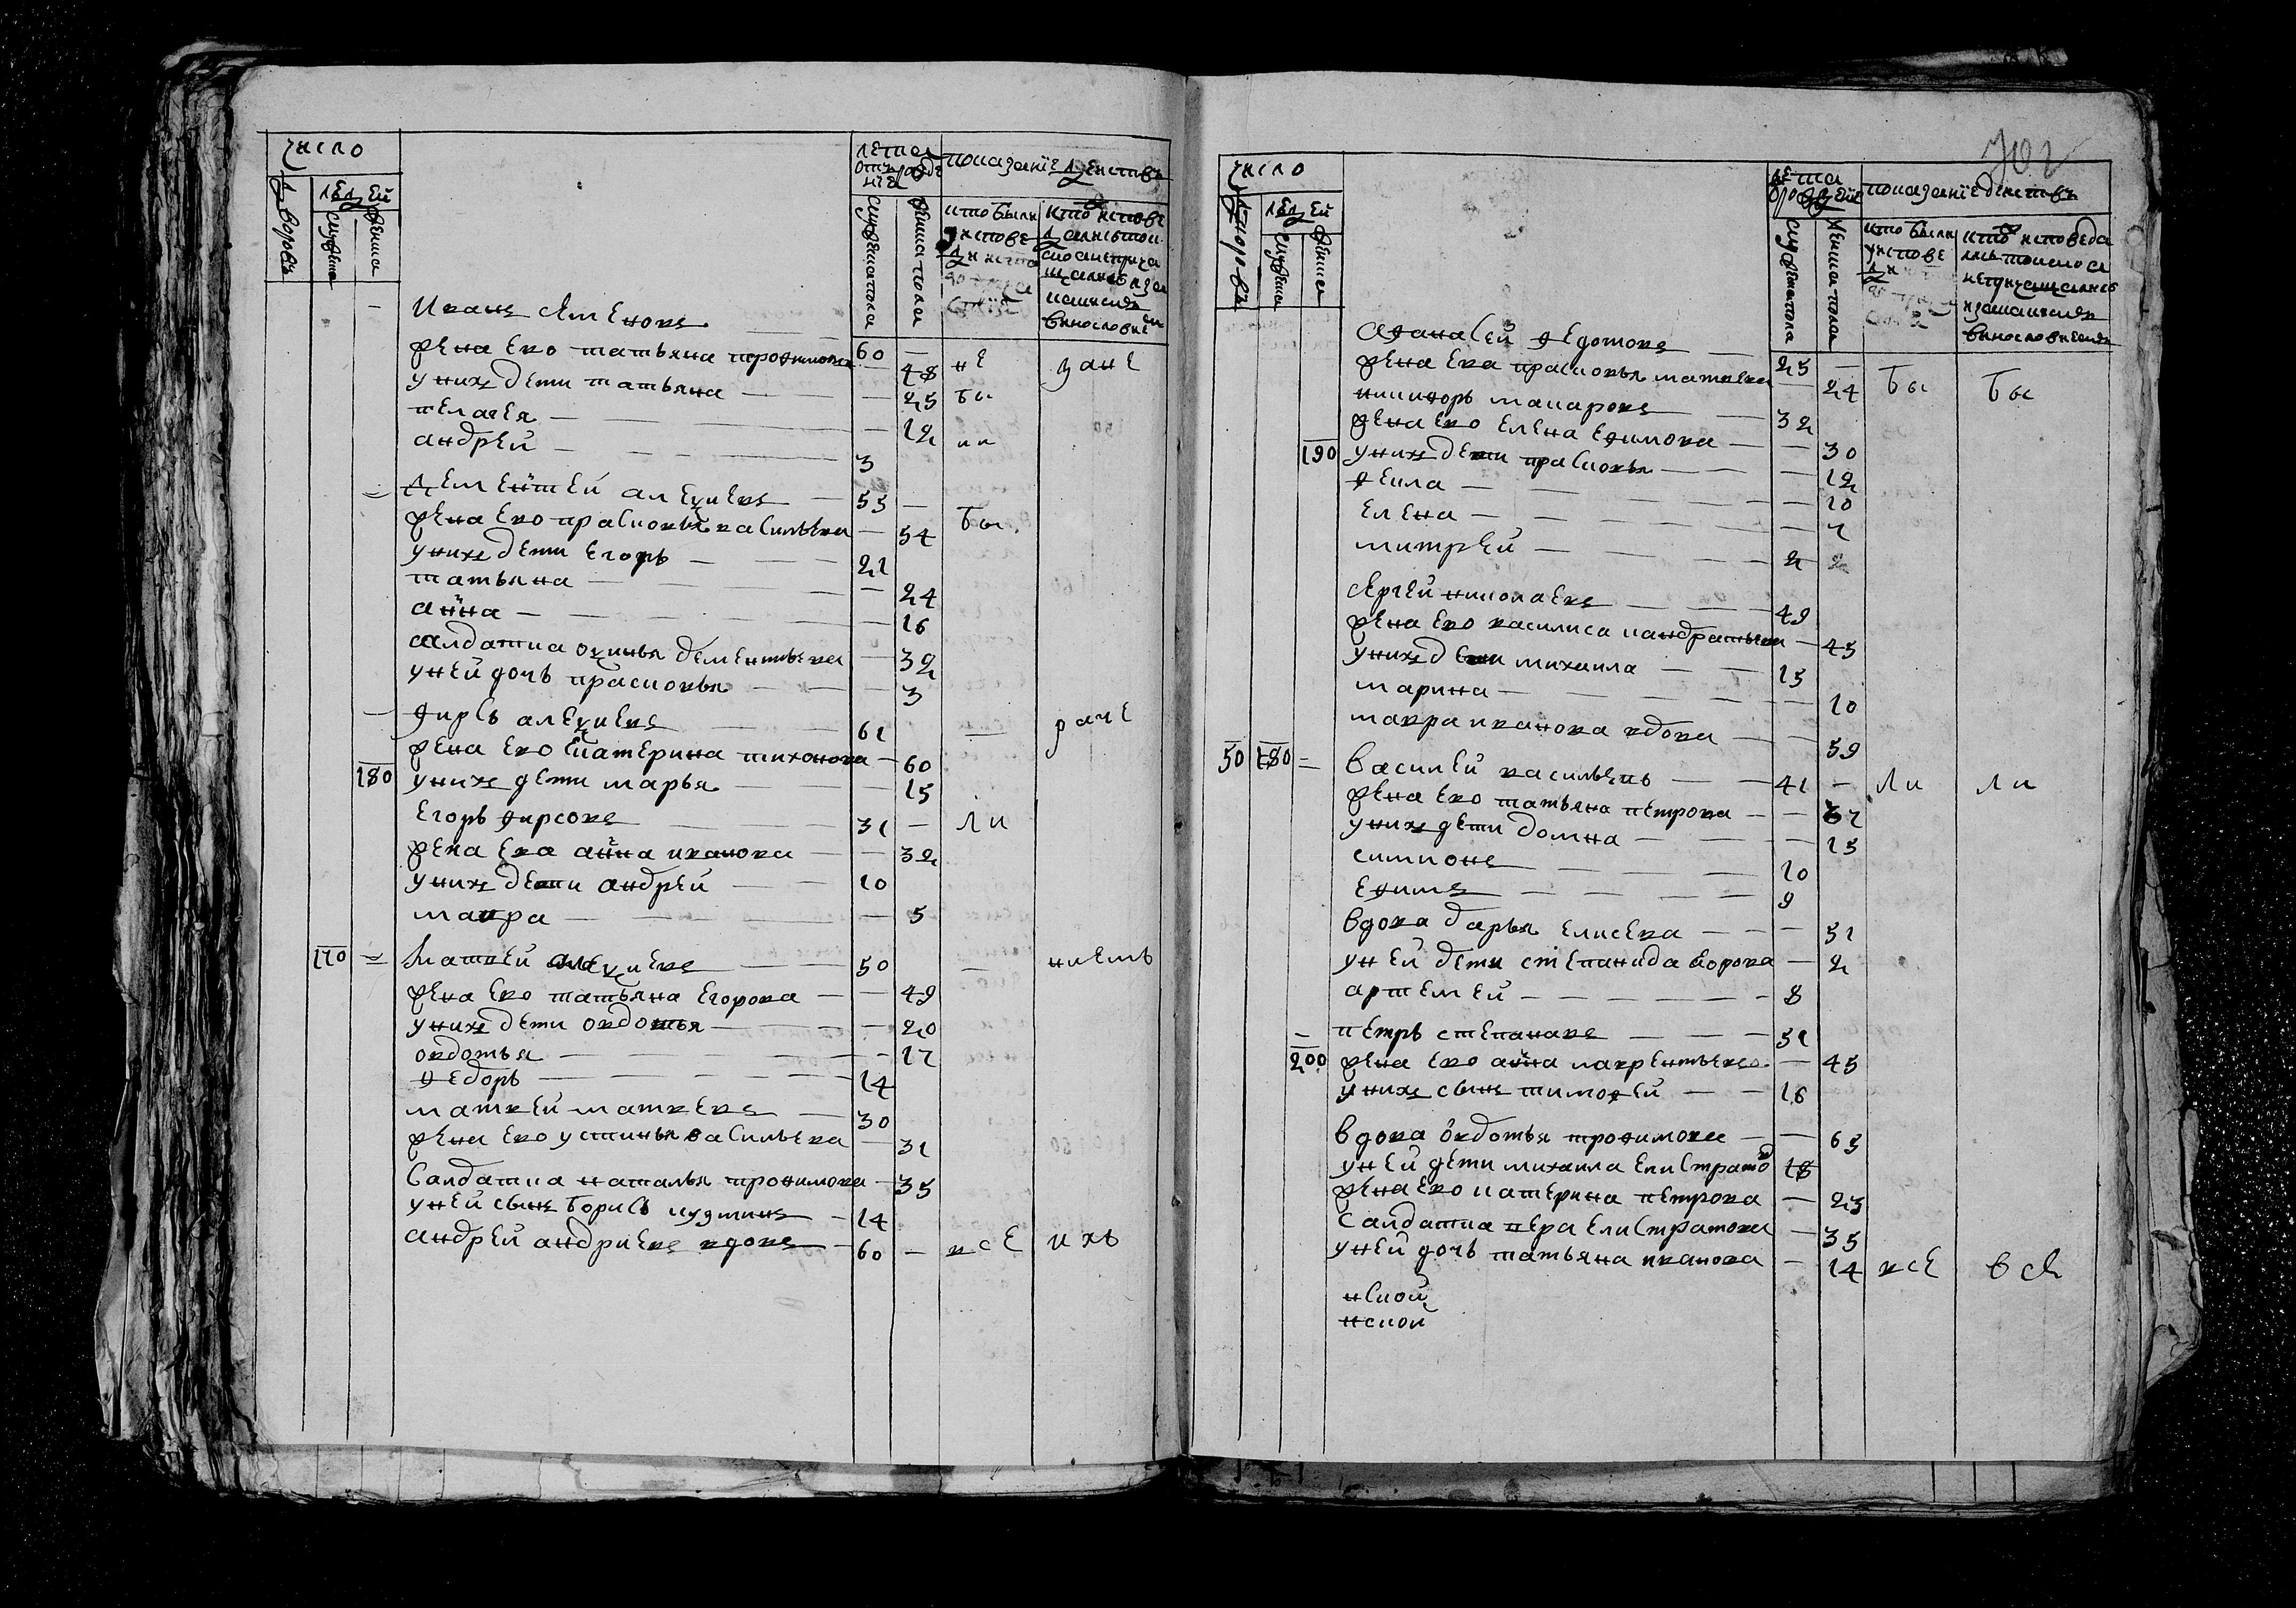 число
дворовъ
людей
мужеска
женска
лета от рожде нiя
мужеска пола
женска пола
показанiе действъ
кто были у испове ди и свята го причас тия
кто испове дались токмо а не прича щались и за каким винословие м
иванъ семеновъ — 60 —
жена ево татьяна трофимова — 48 не зане
у нихъ дети татьяна — 25 бы
пелагея — 12 ии
андрей — 3
= дементей алексиевъ — 55 —
жена ево прасковья васильева — 54 бы
у нихъ дети егоръ — 21
татьяна — 24
анна — 16
салдатка акинья дементьева — 32
у ней дочь прасковья — 3
— фирсъ алексиевъ 61 — раче
жена ево екатерина тихонова — 60
180 у нихъ дети марья — 15
егоръ фирсовъ — 31 — ли
жена ева анна иванова — 32
у нихъ дети андрей — 10
мавра — 5
170 = матвей алексиевъ — 50 —
жена ево татьяна егорова — 49
у нихъ дети овдотья — 20
овдотья — 17
федоръ — 14
матвей матвевъ — 30
жена ево устинья васильева — 31
салдатка наталья трофимова — 35
у ней сынъ борисъ кузминъ — 14
андрей андриевъ вдовъ — 60 — все ихъ
702
число
дворовъ
людей
мужеска
женска
лета от рождения
мужеска пола
женска пола
показанiе действъ
кто были у испове ди
кто исповеда лись токмо а не причащались и за каким винословием
афанасей федотовъ — 25 —
жена ева прасковья матвева — 24 бы бы
никифоръ макаровъ — 32
жена ево елена ефимова — 30
190 у нихъ дети прасковья — 12
фекла — 10
елена — 7
митрей — 2
сергей николаевъ — 49
жена ево василиса кандратьева — 45
у нихъ дети михаила — 15
марина — 10
мавра иванова вдова — 59
50 180 = василей васильевъ — 41 — ли ли
жена ево татьяна петрова — 37
у нихъ дети домна — 15
симионъ — 10
ефимъ — 9
вдова дарья елисева — 51
у ней дети степанида — 2
артемей — 8
— петръ степанавъ — 51
200 жена ево анна лаврентьева — 45
у нихъ сынъ тимофей — 16
вдова овдотья трофимова — 65
у ней дети михаила елистрато 18
жена ево катерина петрова — 23
салдатка вера елистратова — 35
у ней дочь татьяна иванова — 14 все все